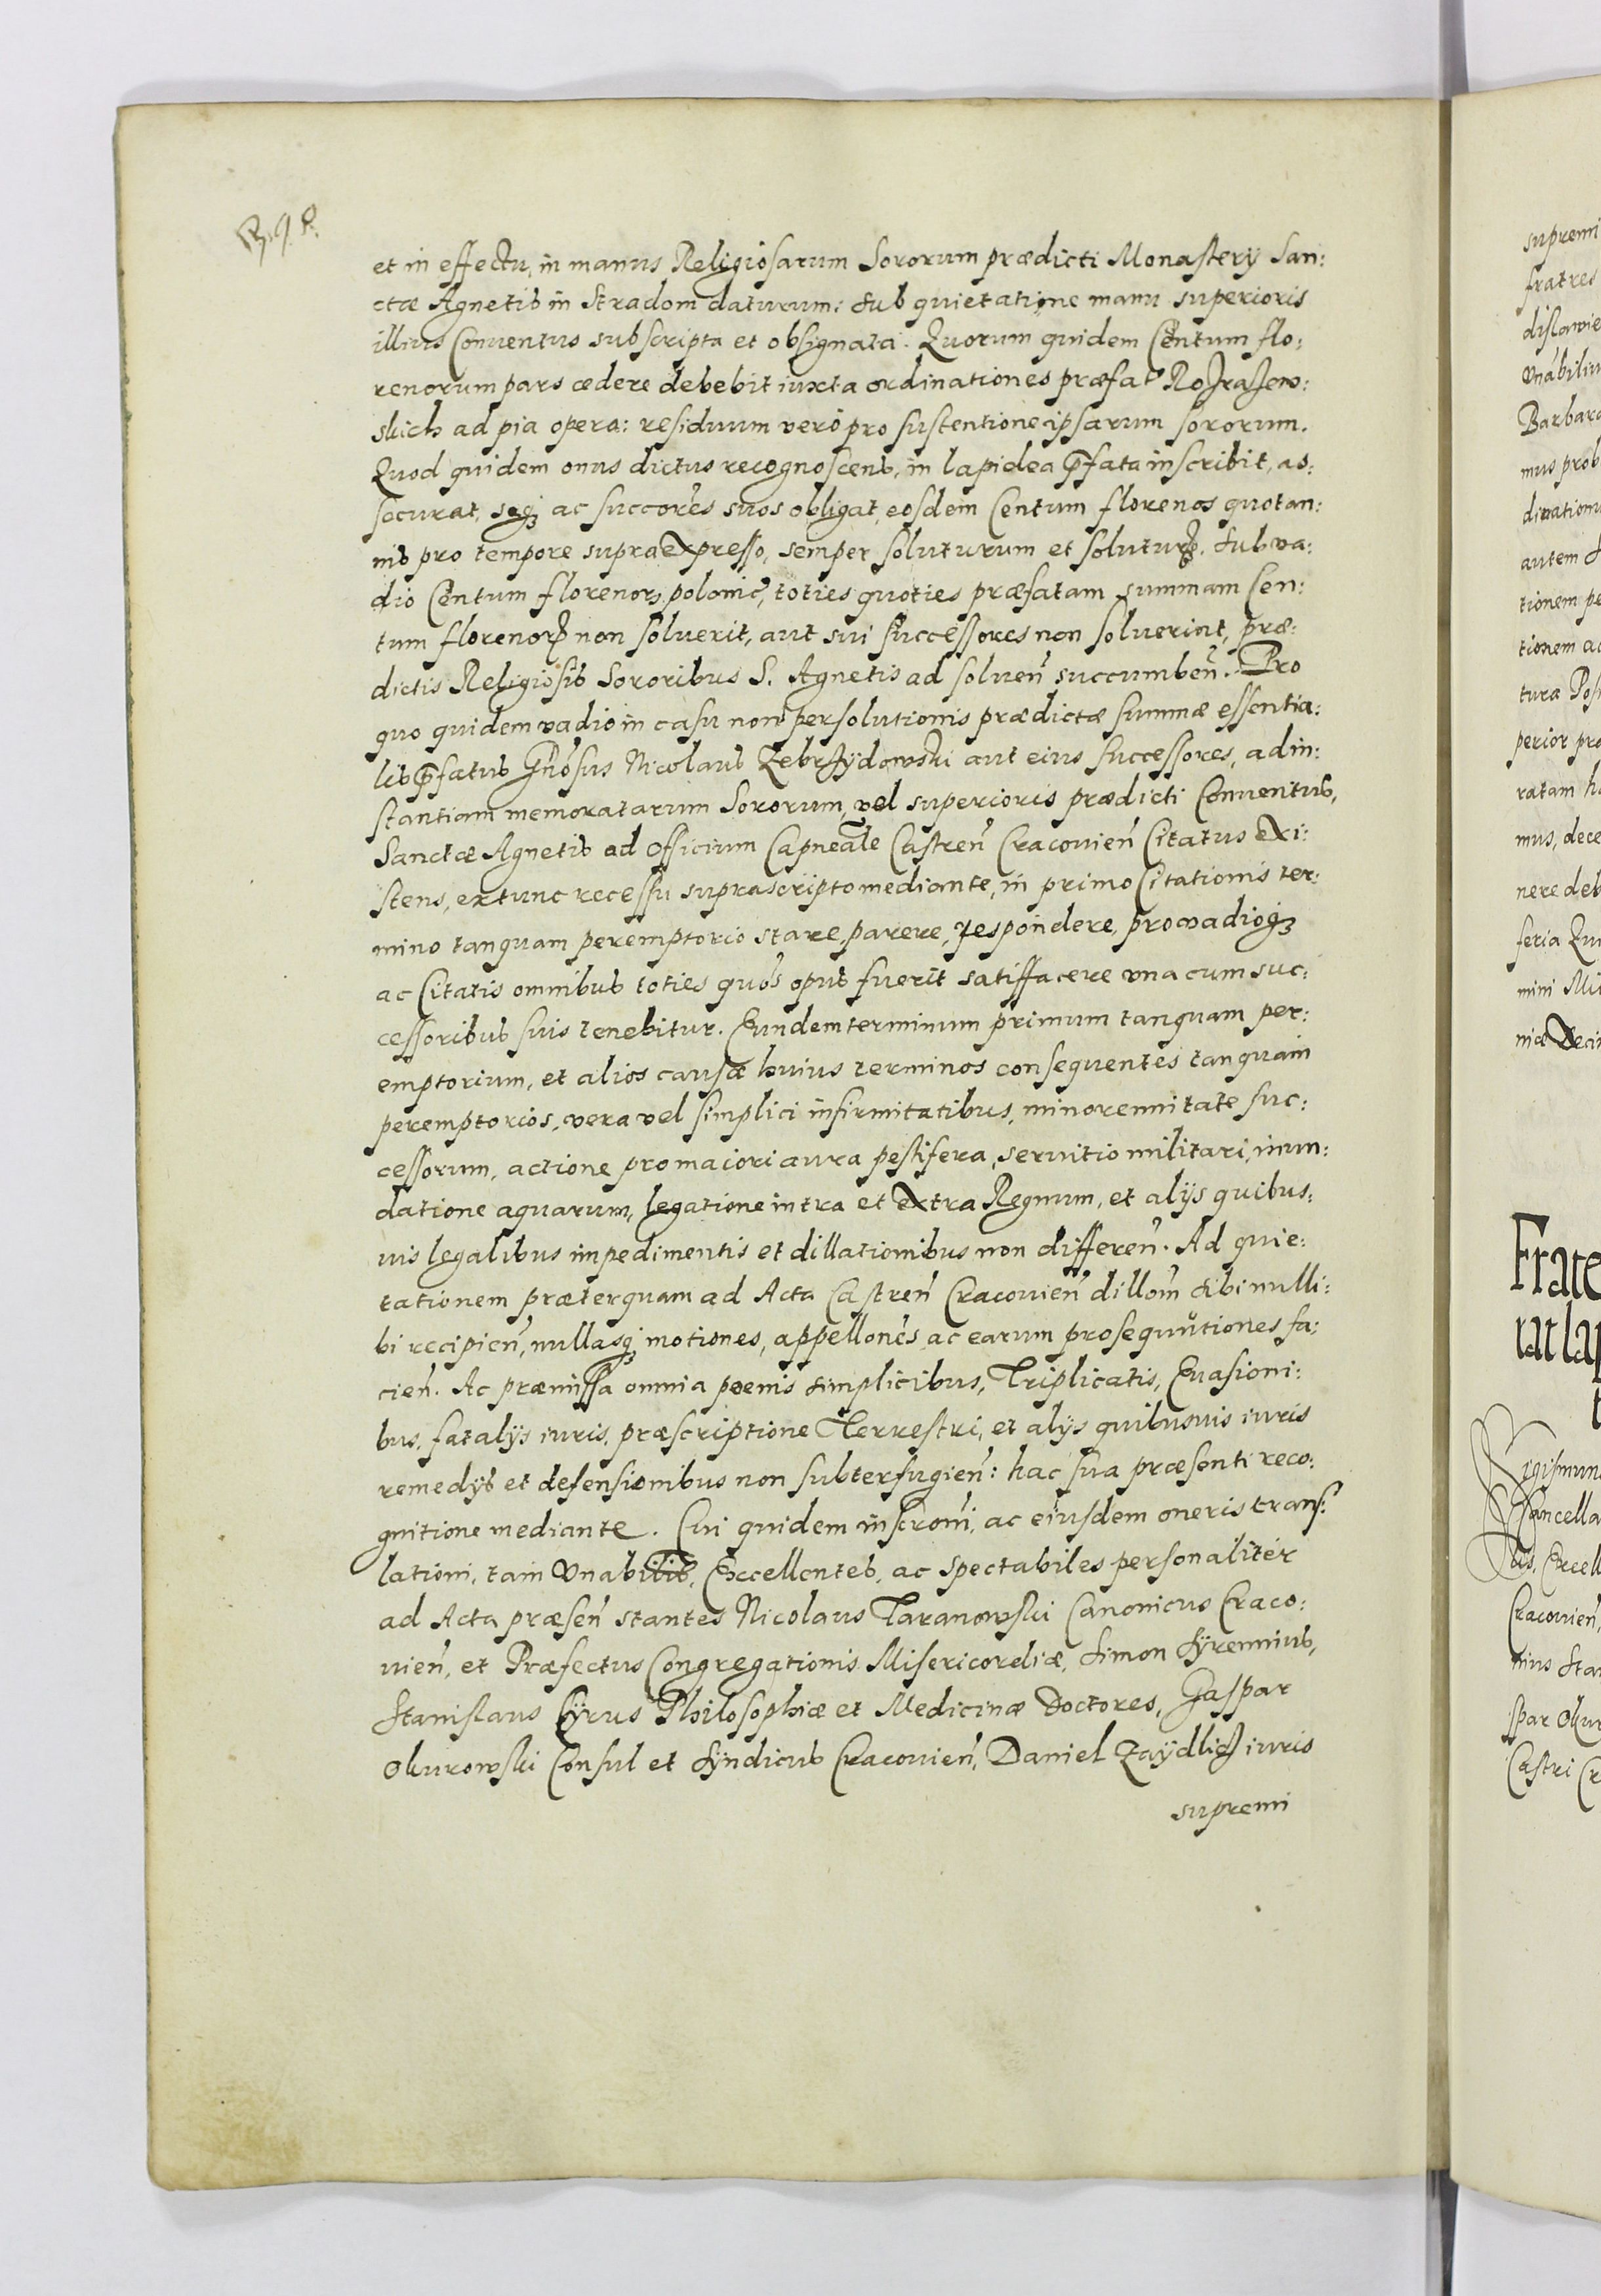 et in effectu, in manus Religiosarum Sororum prædicti Monastery San:
ctæ Agnetis in Stradom daturum: sub quietatione manu superioris
illius Conventus subscripta et obsignata. Quorum quidem Centum flo:
renorum pars cedere debebit iuxta ordinationes præfat
skich ad pia opera: residuum vero pro sustentione ipsarum sororum.
Quod quidem onus dictus recognoscens, in lapidea p̃fata inscribit, as:
securat, seq₃ ac succõres suos obligat, eosdem Centum florenos quotan:
nis pro tempore supra expresso, semper soluturum et soluturos. sub va:
dio Centum florenor polonic, toties quoties præfatam summam Cen:
tum florenor non solverit, aut sui successores non solverint, præ:
dictis Religiosis Sororibus S. Agnetis ad solueñ succumbeñ. Pro
quo quidem vadio in casu non persolutionis prædictæ summæ essentia:
lis p̃fatus Gñosus Nicolaus Zebrzÿdowski aut eius successores, ad in:
stantiam memoratarum Sororum, vel superioris prædicti Conventus,
Sanctæ Agnetis ad Officium Capneãle Castreñ Cracovieñ Citatus exi:
stens, extunc recessu suprascripto mediante, in primo Citationis ter:
mino tanquam peremptorio stare, parere, respondere, pro vadioq₃
ac Citatis omnibus toties quõs opus fuerit satisfacere una cum suc:
cessoribus suis tenebitur. Eundem terminum primum tanquam per:
emptorium, et alios causæ huius terminos consequentes tanquam
peremptorios, vera vel simplici infirmitatibus, minorennitate suc:
cessorum, actione pro maiori aura pestifera, servitio militari, inun:
datione aquarum, legatione intra et extra Regnum, et alijs quibus:
vis legalibus impedimentis et dillationibus non differeñ. Ad quie:
tationem præterquam ad Acta Castreñ Cracovieñ dillom̃ sibi nulli:
bi recipieñ, nullasq₃ motiones, appellones ac earum prosequutiones fa:
cieñ. Ac præmissa omnia poenis simplicibus, Triplicatis, Evasioni:
bus, fatalÿs iuris, præscriptione Terrestri, et alÿs quibusvis iuris
remedÿs et defensionibus non subterfugieñ: hac sua præsenti reco:
gnitione mediante. Cui quidem inscroñi, ac eiusdem oneris trans:
lationi, tam Vnabilis, Excellentes, ac spectabiles personaliter
ad Acta præseñ stantes Nicolaus Taranowski Canonicus Craco:
vieñ, et Præfectus Congregationis Misericordiæ, Simon Sÿrennius,
Stanislaus Cÿrus Philosophiæ et Medicinæ Doctores, Gaspar
Okurowski Consul et Sÿndicus Cracovieñ, Daniel Zaÿdlicz iuris
supremi